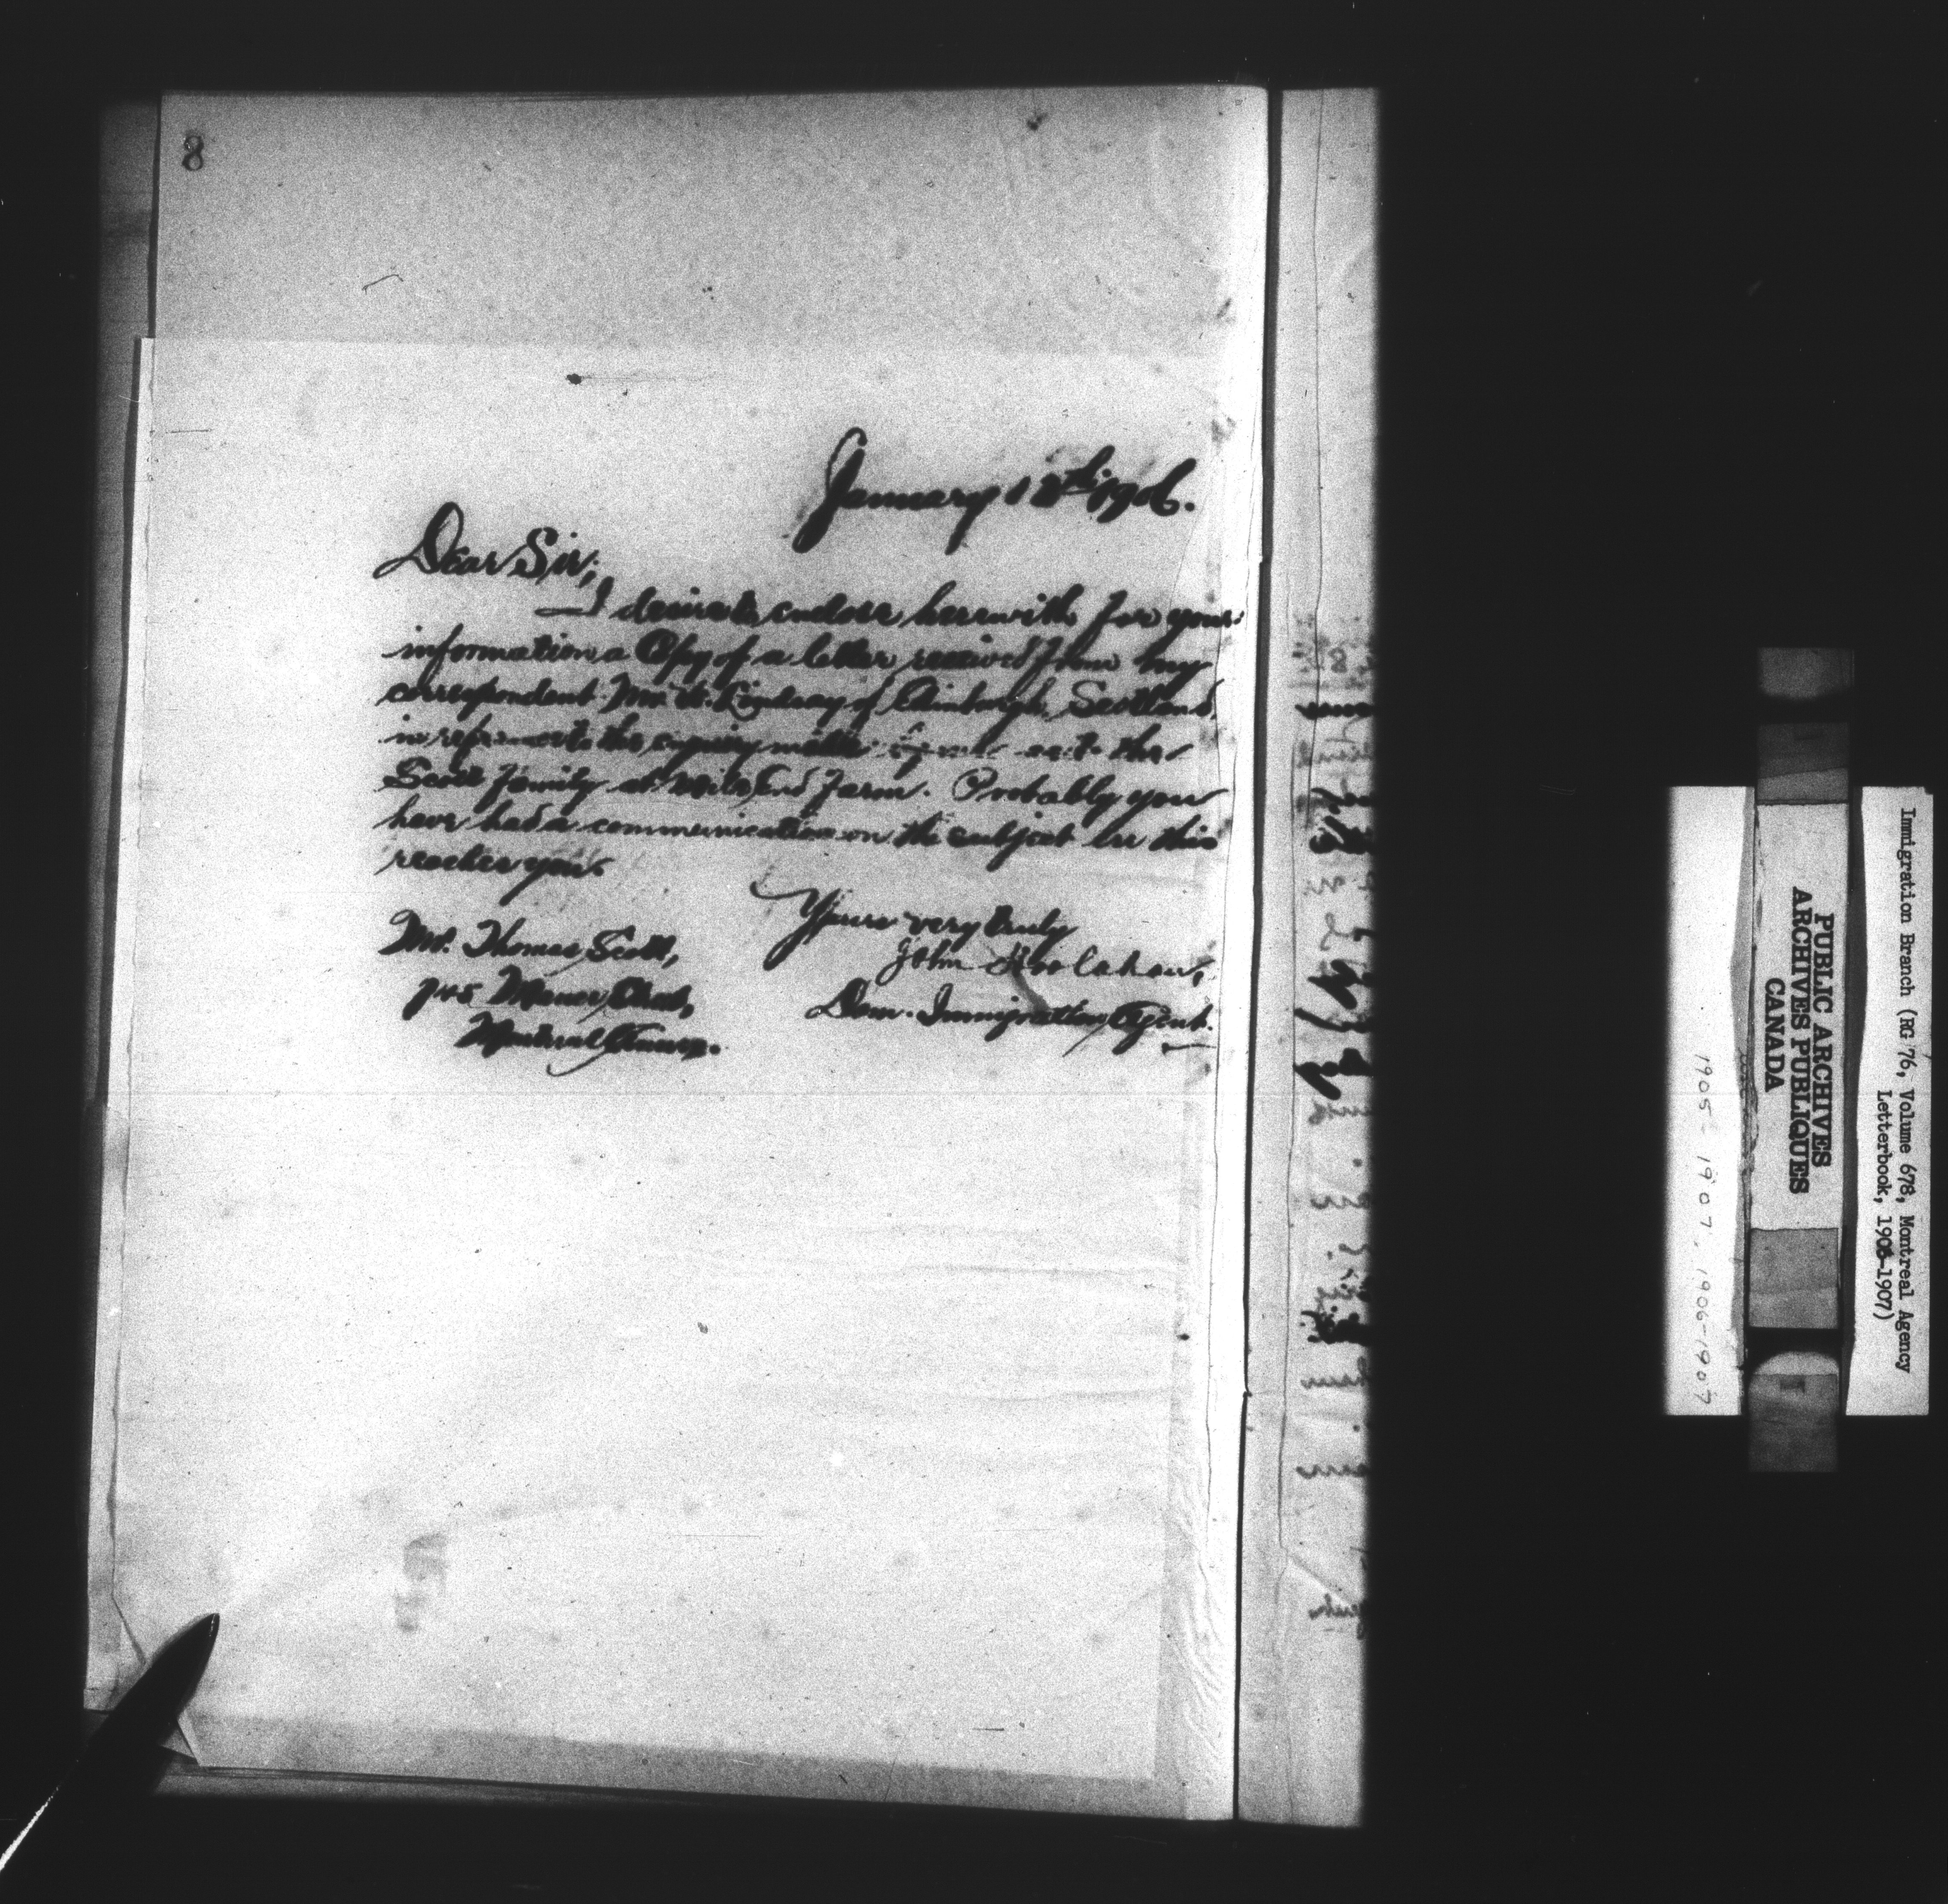 8
January 18th 1906.
Dear Sir;
I desire to enclose herewith for your
information a Copy of a letter received from my
correspondent Mr. W. Lindsay of Edinburgh, Scotland,
in reference to the enquiry to the
Scott family at Mile End Farm. Probably you
have had a communication on the subject ere this
reaches you.
Yours very truly
John Hoolahan,
Dom. Immigration Agent.
Mr. Thomas Scott,
Montreal
Immigration Branch (RG 76, Volume 678, Montreal Agency
Letterbook, 1906-1907)
PUBLIC ARCHIVES
ARCHIVES PUBLIQUES
CANADA
1905-1907, 1906-1907